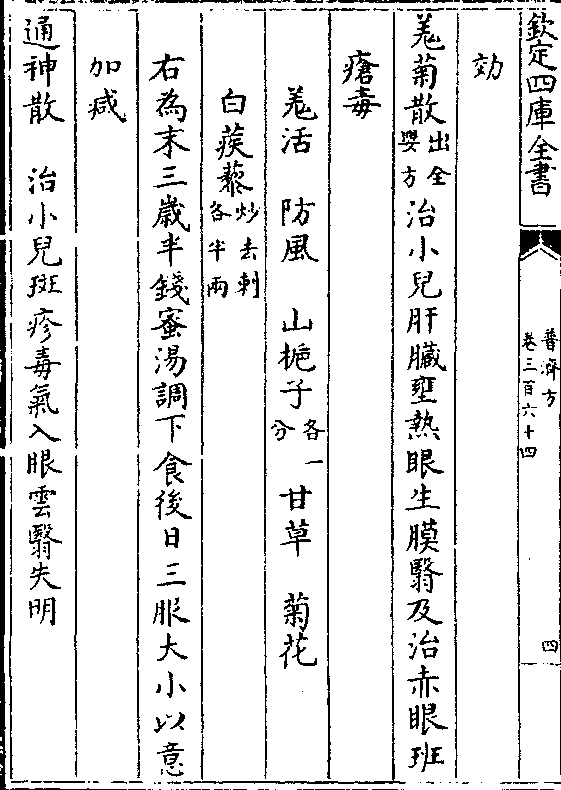 欽定四庫全書
普濟方
卷三百六十四
四
効
羗菊散出全嬰方治小兒肝臟壅熱眼生膜翳及治赤眼班
瘡毒
羗活　防風　山梔子各一分　甘草　菊花
白蒺藜炒去刺各半兩
右為末三歲半錢蜜湯調下食後日三服大小以意
加减
通神散　治小兒斑疹毒氣入眼雲翳失明